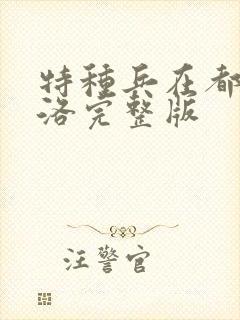 特种兵在都
洛完整版
汪警官